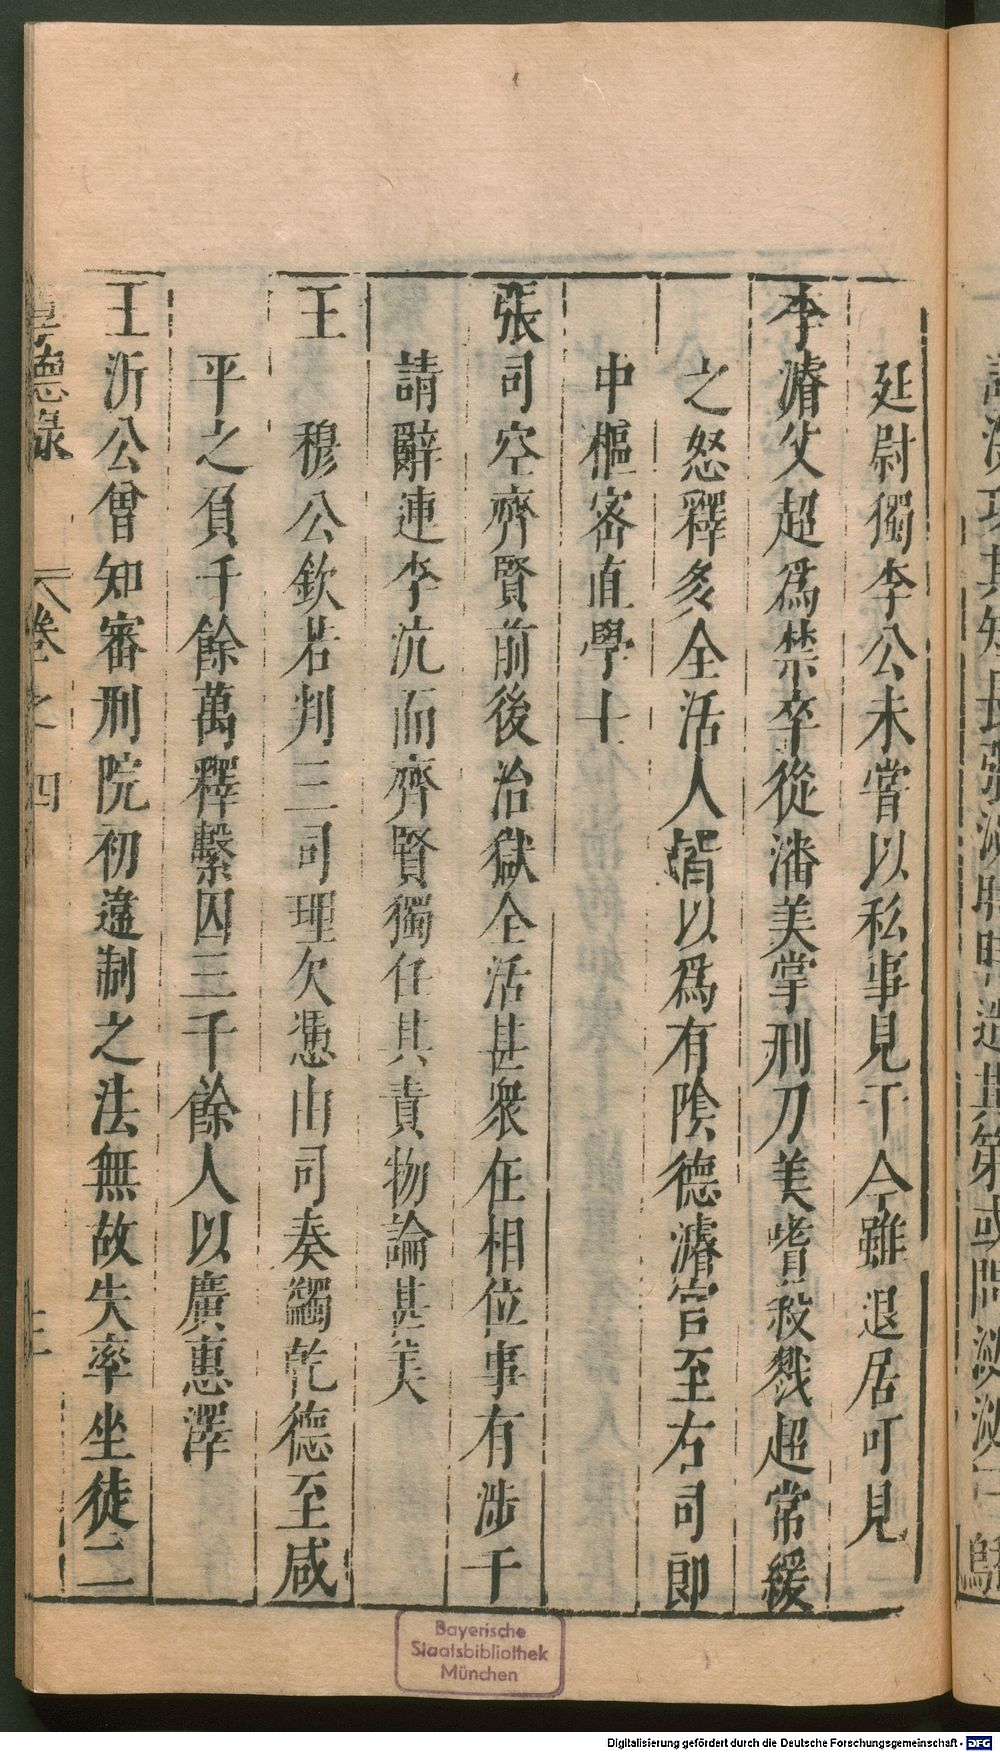 廷尉獨李公未嘗以私事見干今雖退居可見
李濬父超爲禁卒從潘美掌刑刀美嗜殺戮超常緩
之怒釋多全活人謂以爲有陰德濬官至右司郎
中樞密直學士
張司空齊賢前後治獄全活甚衆在相位事有涉干
請辭連李沆而齊賢獨任其責物論甚美
王 穆公欽若判三司理欠憑由司奏蠲乾德至咸
平之負千餘萬釋繫囚三千餘人以廣惠澤
王沂公曾知審刑院初違制之法無故失率坐徒二
德錄 卷之四
Bayerische
Staatsbibliothek
München
Digitalisierung gefördert durch die Deutsche Forschungsgemeinschaft - DFG